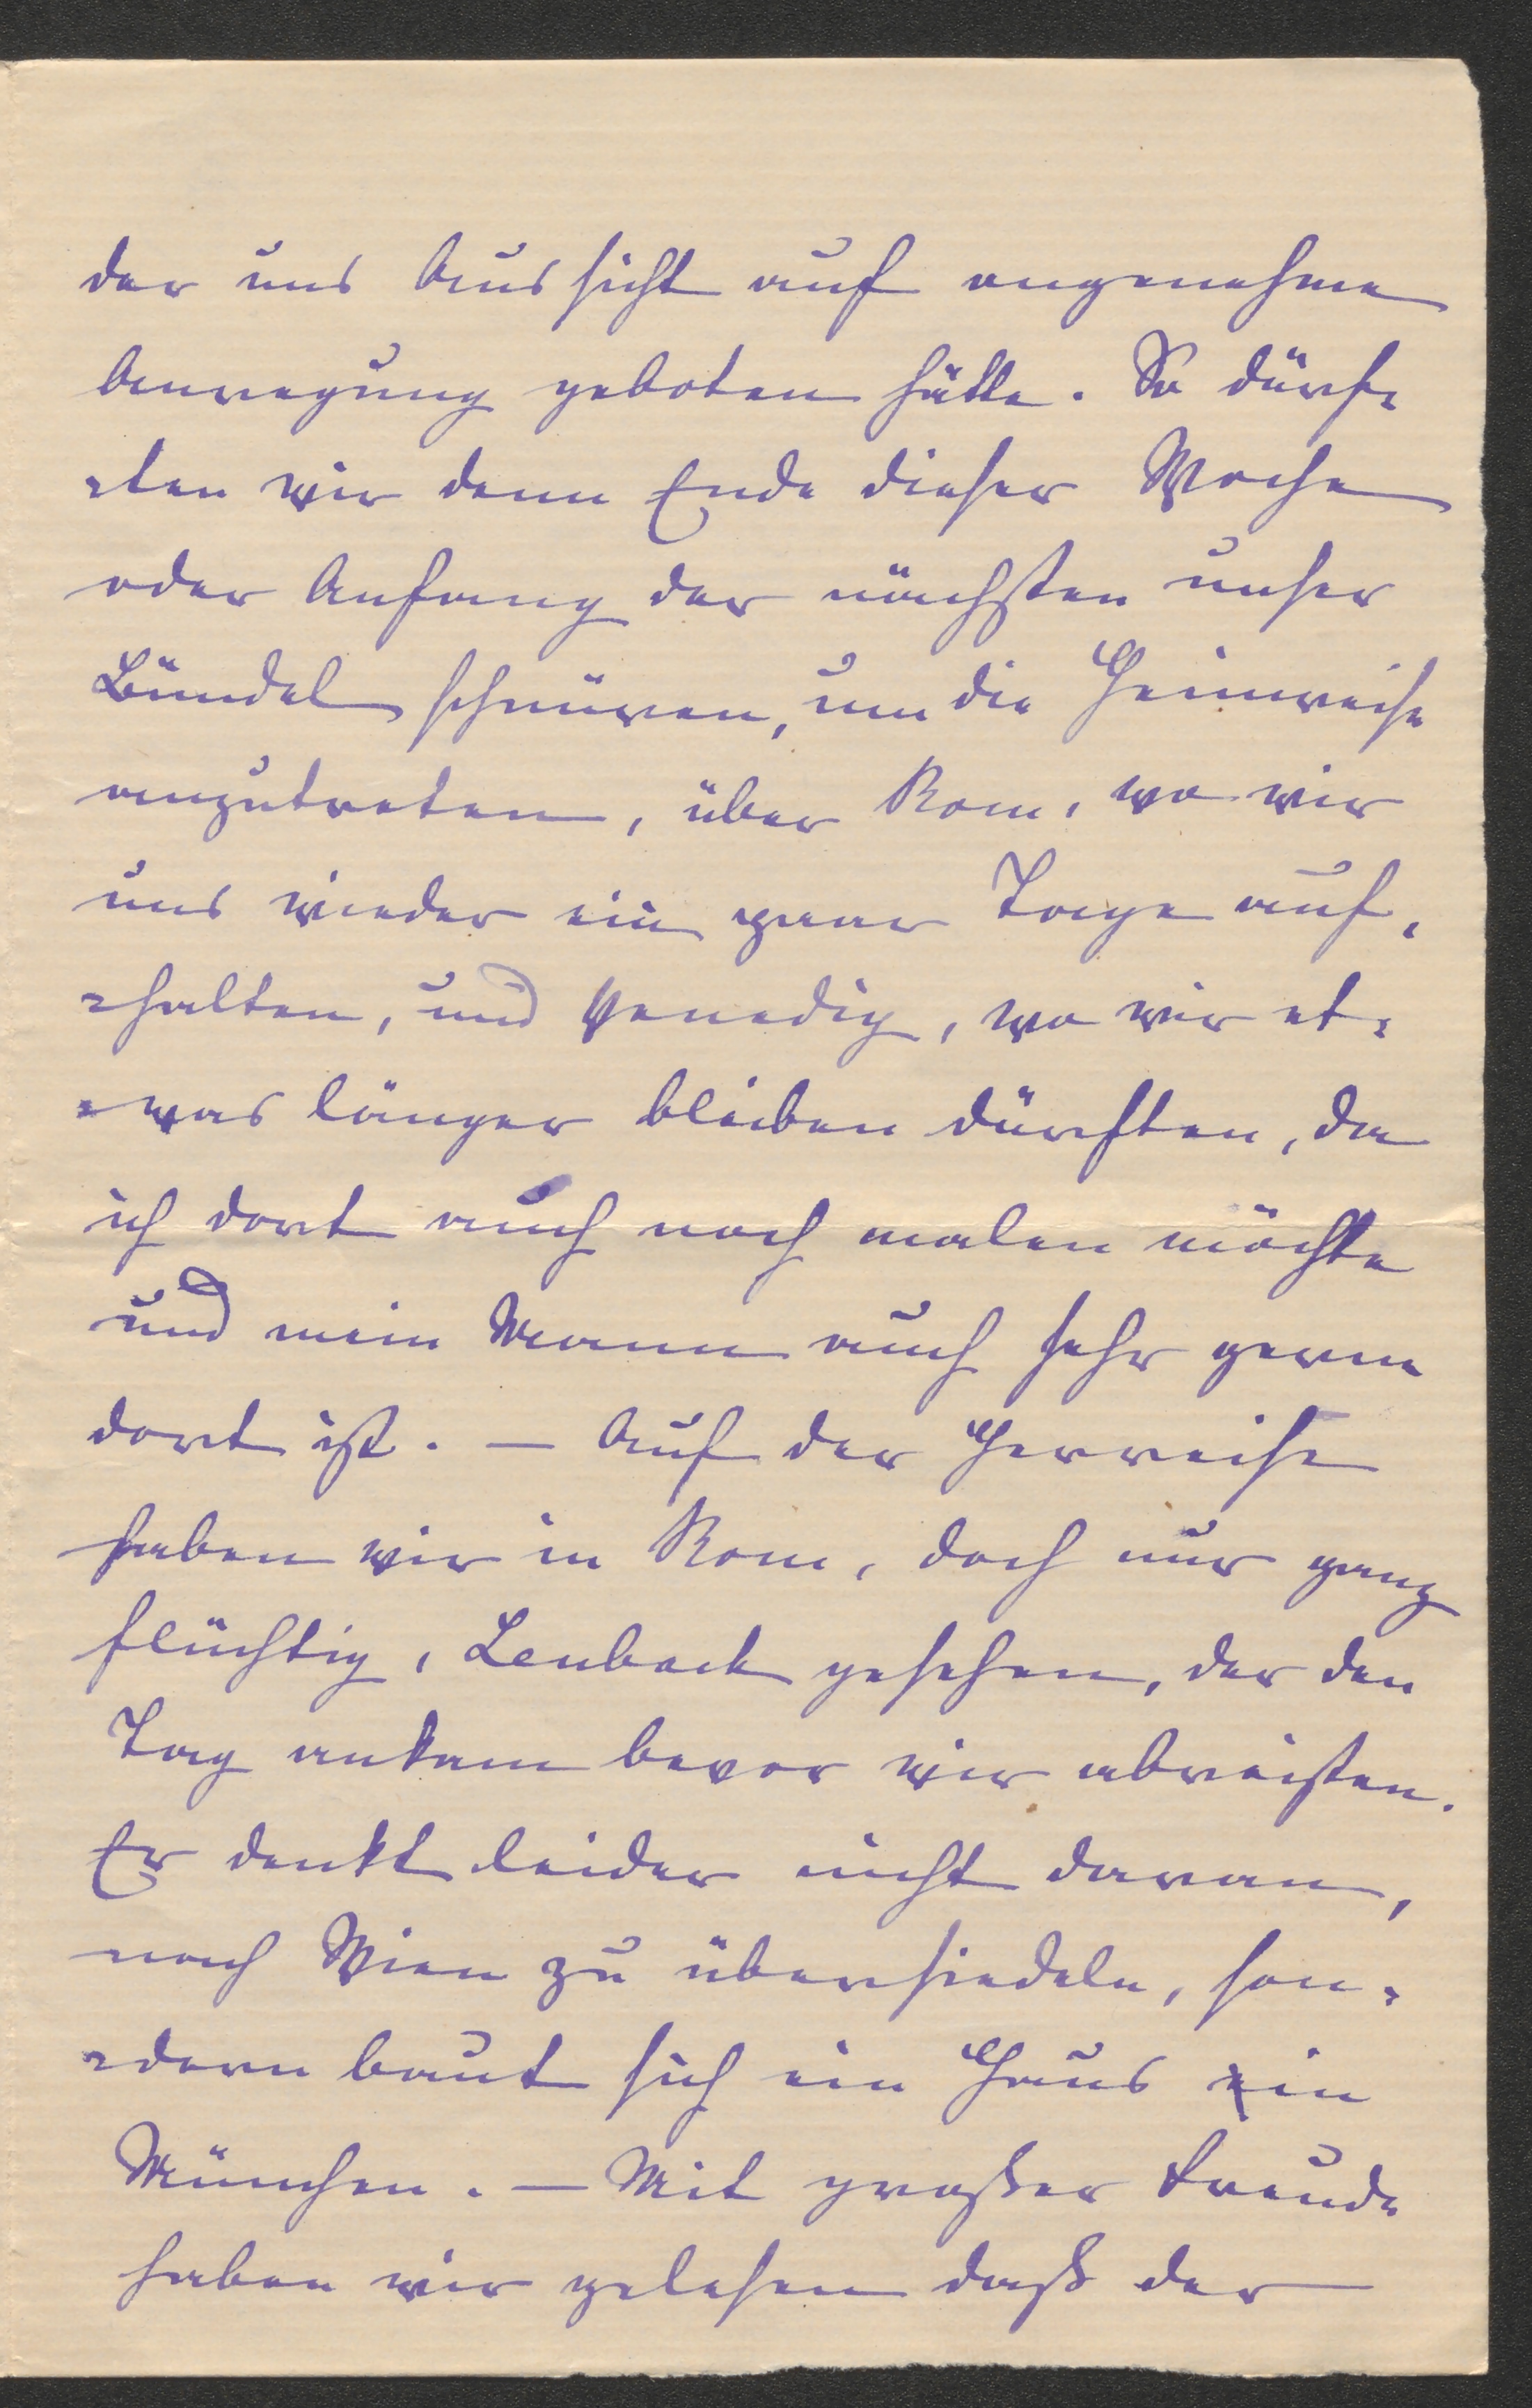 der uns Aussicht auf angenehme
Anregung geboten hätte. So dürf-
-ten wir denn Ende dieser Woche
oder Anfang der nächsten unser
Bündel schnüren, um die Heimreise
anzutreten, über Rom, wo wir
uns wieder ein paar Tage auf-
-halten, und Venedig, wo wir et-
-was länger bleiben dürften, da
ich dort auch noch malen möchte
und mein Mann auch sehr gerne
dort ist. — Auf der Herreise
haben wir in Rom, doch nur ganz
flüchtig, Lenbach gesehen, der den
Tag ankam bevor wir abreisten.
Er denkt leider nicht daran,
nach Wien zu übersiedeln, son-
-dern baut sich ein Haus in
München. — Mit großer Freude
haben wir gelesen daß der